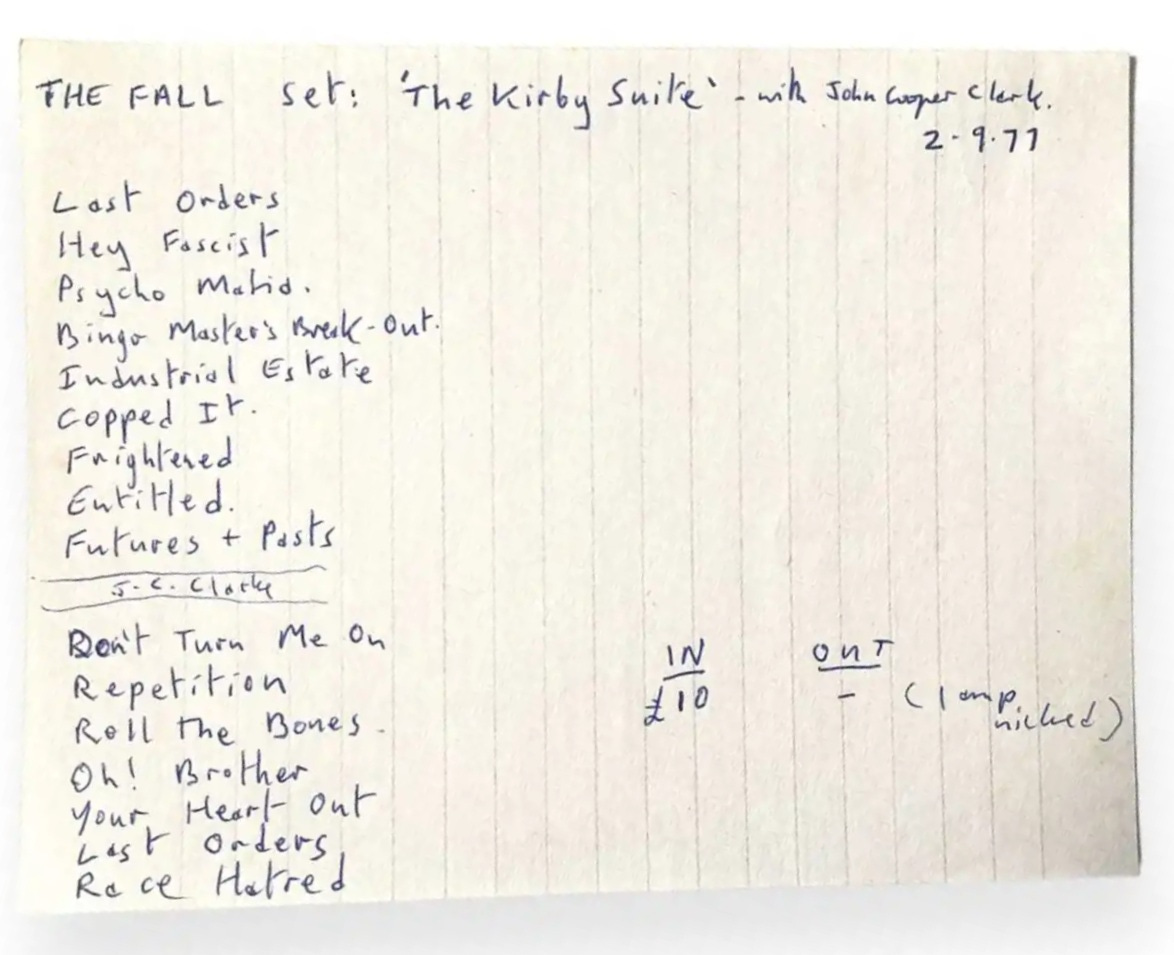 THE FALL set: 'The Kirby Suite' - with John Cooper Clark.
2-9-77
Last Orders
Hey Fascist
Psycho Mafia.
Bingo Master's Break-Out.
Industrial Estate
Copped It.
Frightened
Entitled.
Futures + Pasts
J. C. Clarke
Don't Turn Me On
Repetition
Roll the Bones.
Oh! Brother
Your Heart Out
Last Orders
Race Hatred
IN OUT
£10 - (1 amp
nicked)